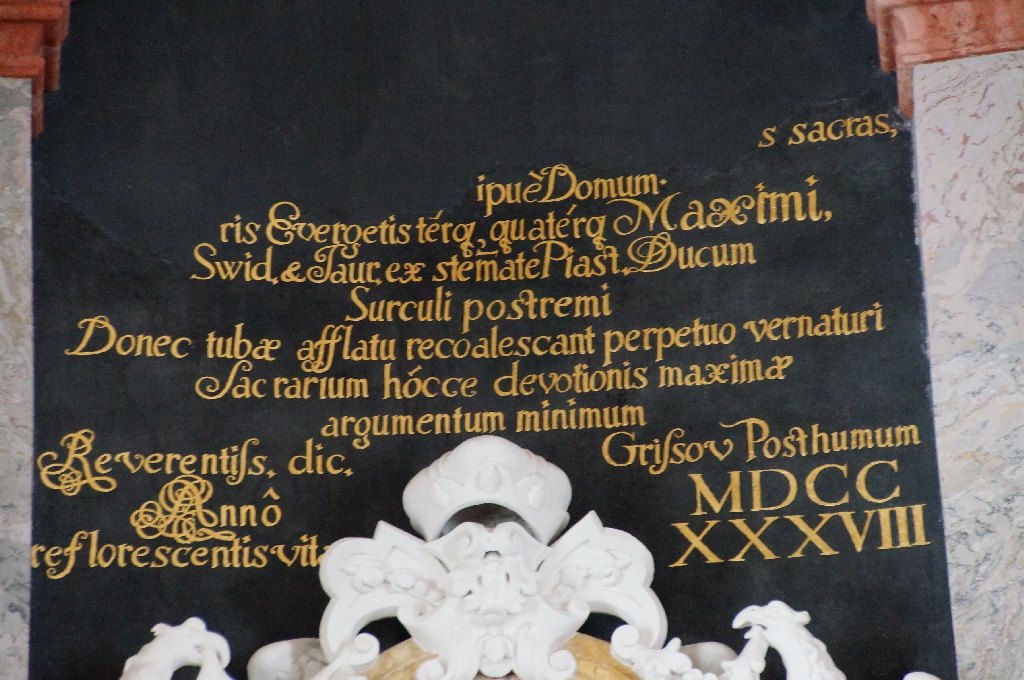 s sacras,
ipuè Domum.
ris Evergetis térq, quatérq Maximi,
Swid. & Jaur. ex stem̄ate Piast. Ducum
Surculi postremi
Donec tubæ afflatu recoalescant perpetuo vernaturi
Sacrarium hócce devotionis maximæ
argumentum minimum
Reverentiss. dic.
Grissov Posthumum
Annô
MDCC
reflorescentis vita
XXXVIII